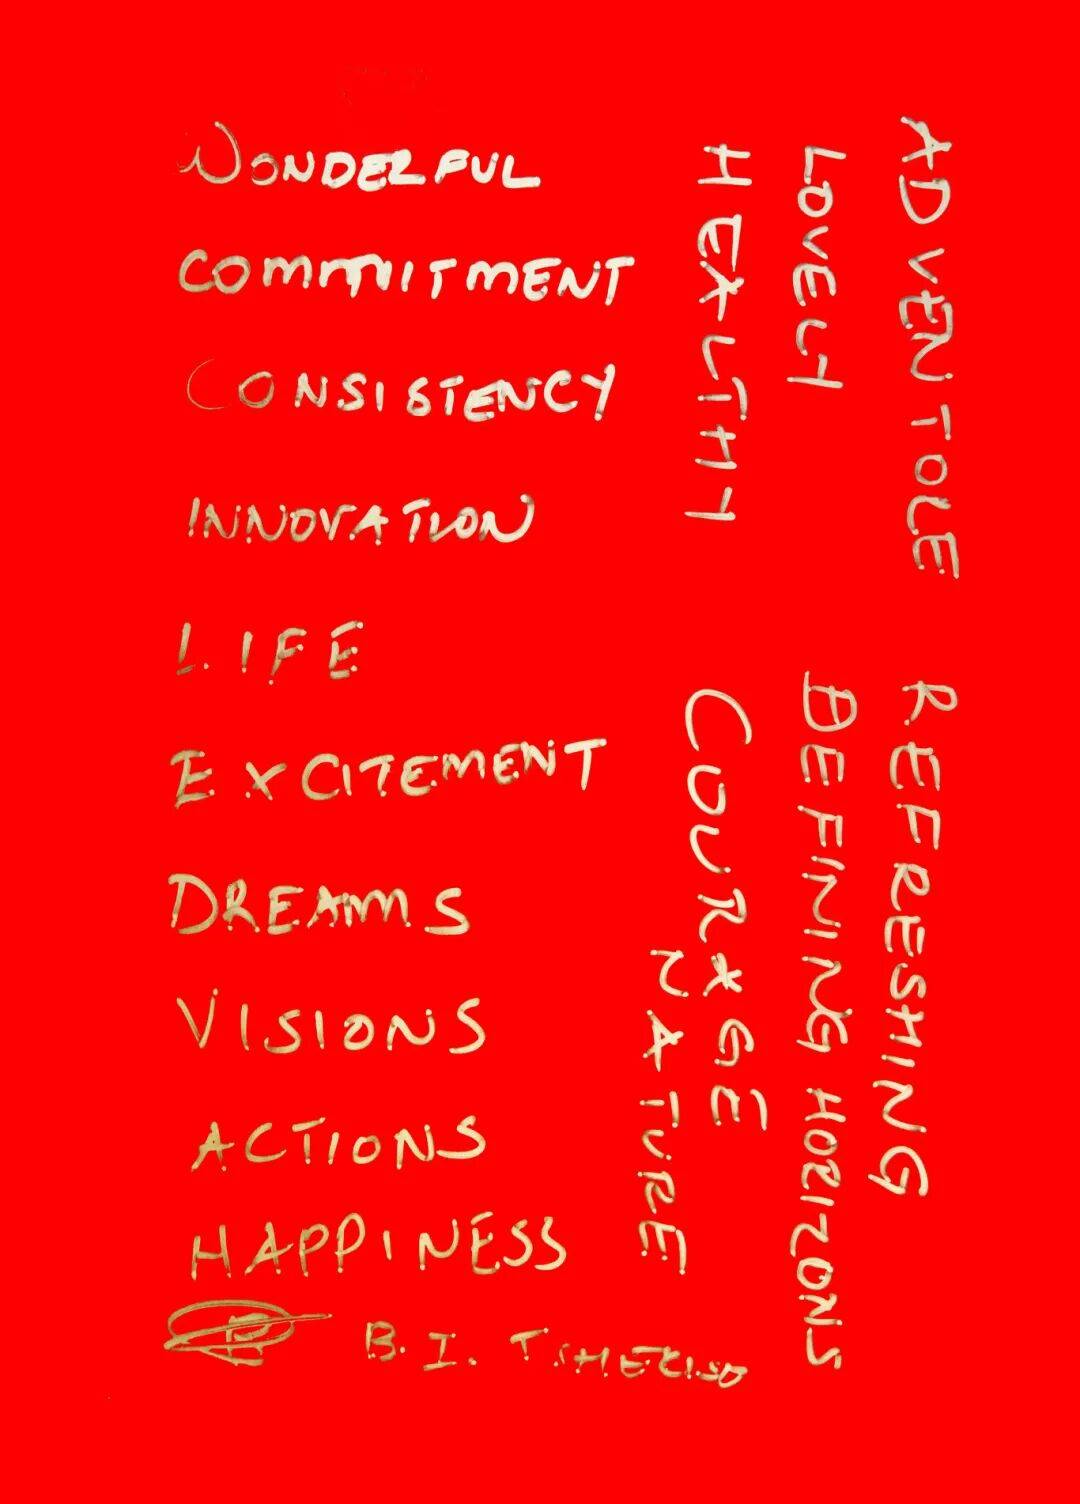 WONDERFUL
COMMITMENT
CONSISTENCY
INNOVATION
LIFE
EXCITEMENT
DREAMS
VISIONS
ACTIONS
HAPPINESS
B. I.
ADVENTOLE
LOVELY
HEALTHY
REFRESHING
DEFINING HORIZONS
COURAGE
NATURE